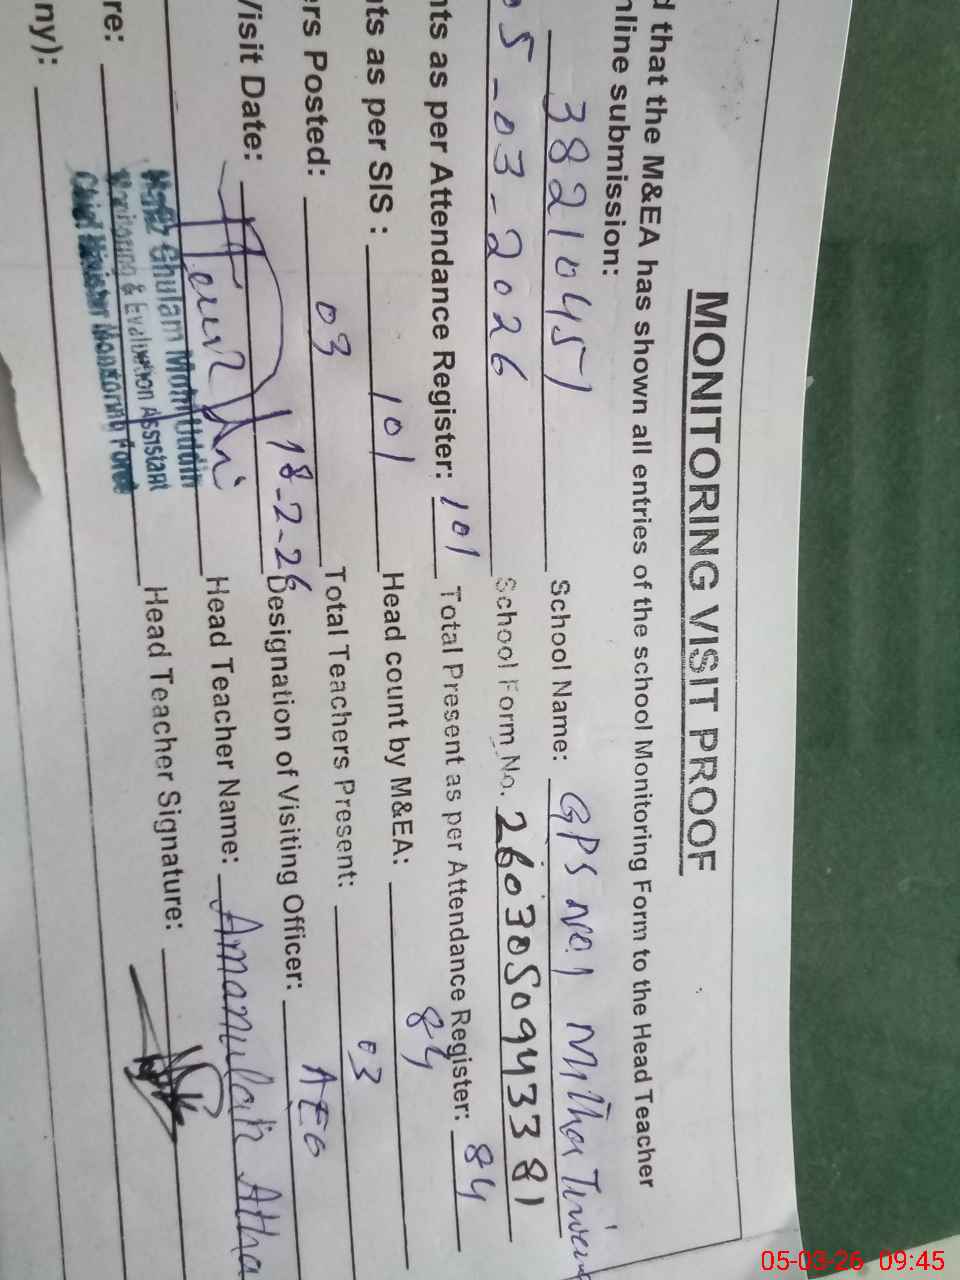 MONITORING VISIT PROOF
d that the M&EA has shown all entries of the school Monitoring Form to the Head Teacher
nline submission:
38210451 School Name: GPS No.1 Mitha Tiwana
05-03-2026 School Form No. 2603050943381
nts as per Attendance Register: 101 Total Present as per Attendance Register: 84
nts as per SIS: 101 Head count by M&EA: 84
ers Posted: 03 Total Teachers Present: 03
Visit Date: 18-2-26 Designation of Visiting Officer: AEO
Head Teacher Name: Amanullah Atha
re: Head Teacher Signature:
ny):
Hafiz Ghulam Mohiuddin
Monitoring & Evaluation Assistant
Chief Minister Monitoring Force
05-03-26 09:45